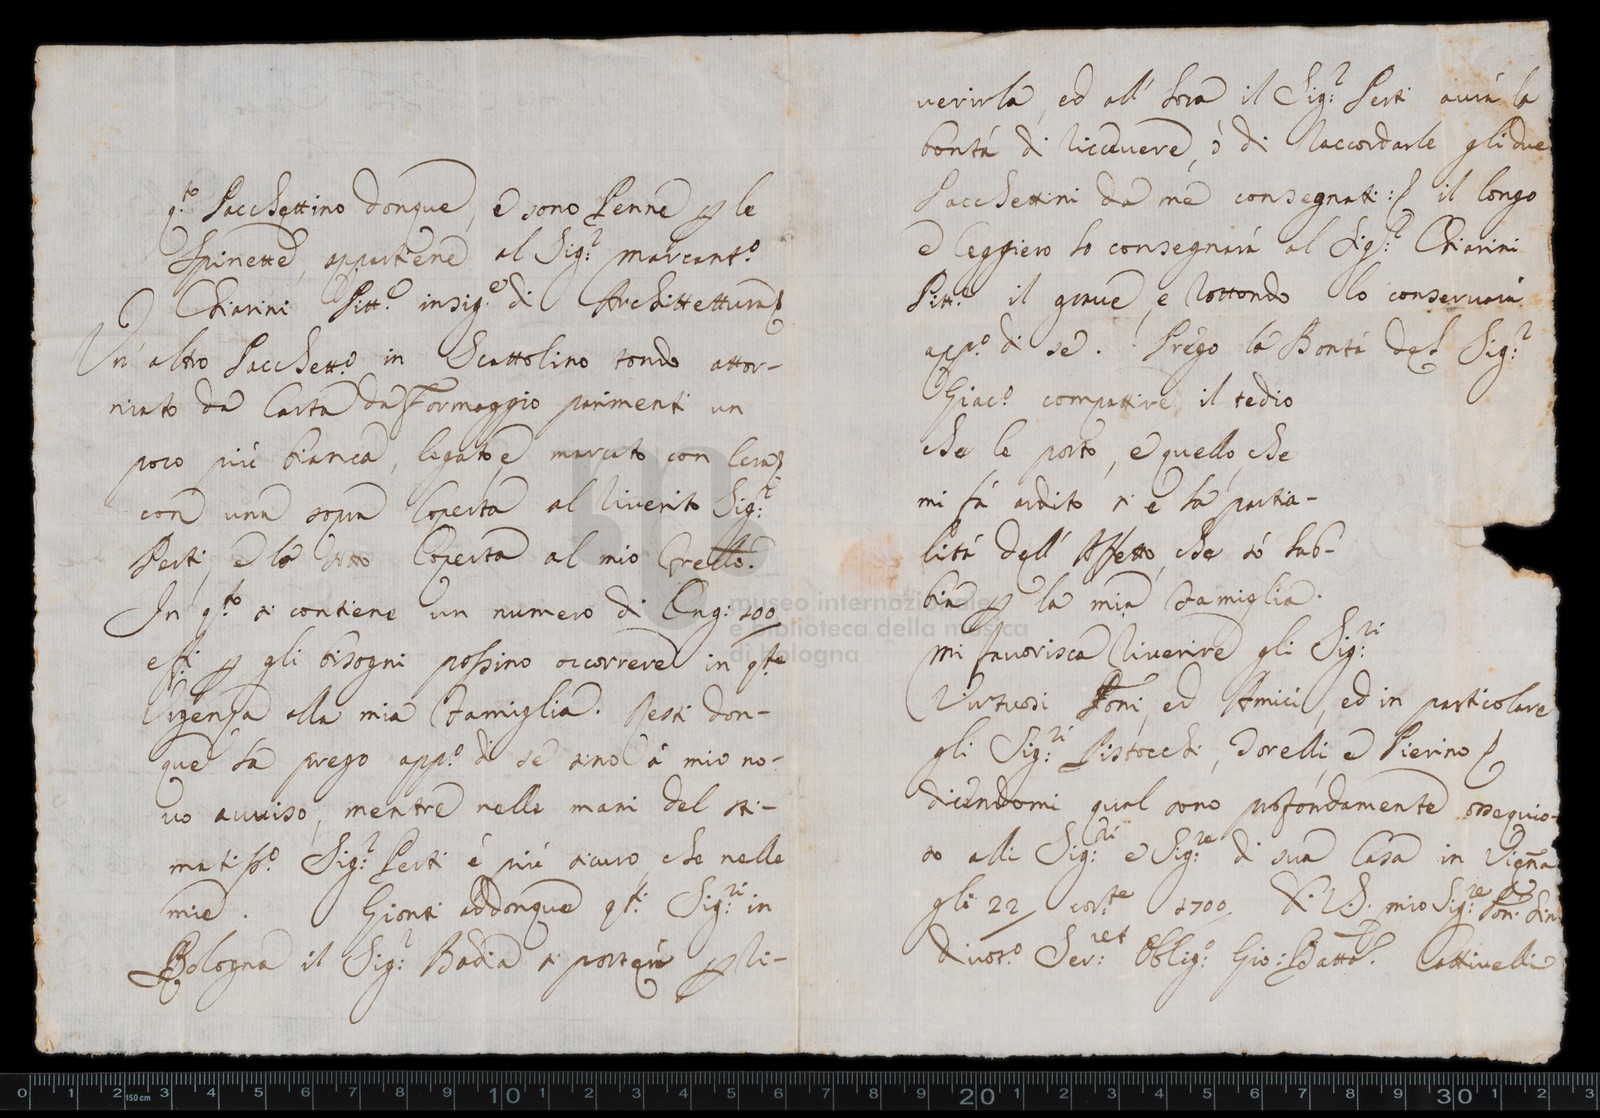 q.to Pacchettino donque, e sono Penne p le
Spinette, appartiene al Sig.r Marcant.o
Chiarini Pitt.e insig.e di Architettura
Un' altro Pacchett.o in Scattolino tondo attor-
niato da Carta da Formaggio parimenti un
poco più bianca, legato, e marcato con Cera
con una sopra Coperta al riverito Sig.r
Perti, e la sotto Coperta al mio Frello.
In q.to si contiene un numero di Ong: 100
essi p gli bisogni possino occorrere in q.te
Urgenza alla mia Famiglia. Resti don-
que la prego app.o di se sino à mio no-
vo avviso, mentre nelle mani del sti-
matiss.o Sig.r Perti è più sicuro, che nelle
mie. Gionti addonque q.ti Sig.ri in
Bologna il Sig.r Badia si porterà p li-
verirla, ed all' hora il Sig.r Perti avrà la
bontà di riccuvere, ò di raccordarle gli due
Pacchettini da me consegnati: il longo
e leggiero lo consegnarà al Sig.r Chiarini
Pitt.e il grave, e rottondo lo conservarà
app.o di se. Prego la Bontà del Sig.r
Giac.o compattire il tedio
che le porto, e quello, che
mi fà ardito si è la partia-
lità dell' Affetto, che sò hab-
bia p la mia Famiglia.
Mi favorisca riverire gli Sig.ri
Virtuosi Proni, ed Amici, ed in particolare
gli Sig.ri Pistocchi, Torelli, e Pierino
dicendomi qual sono profondamente ossequio-
so alli Sig.ri e Sig.re di sua Casa in Vienna
gli 22 cor.te 1700 D. V. S. mio Sig.re Pon. Sin
divot.o Ser.re Obblig.o Gio: Batta. Cattivelli